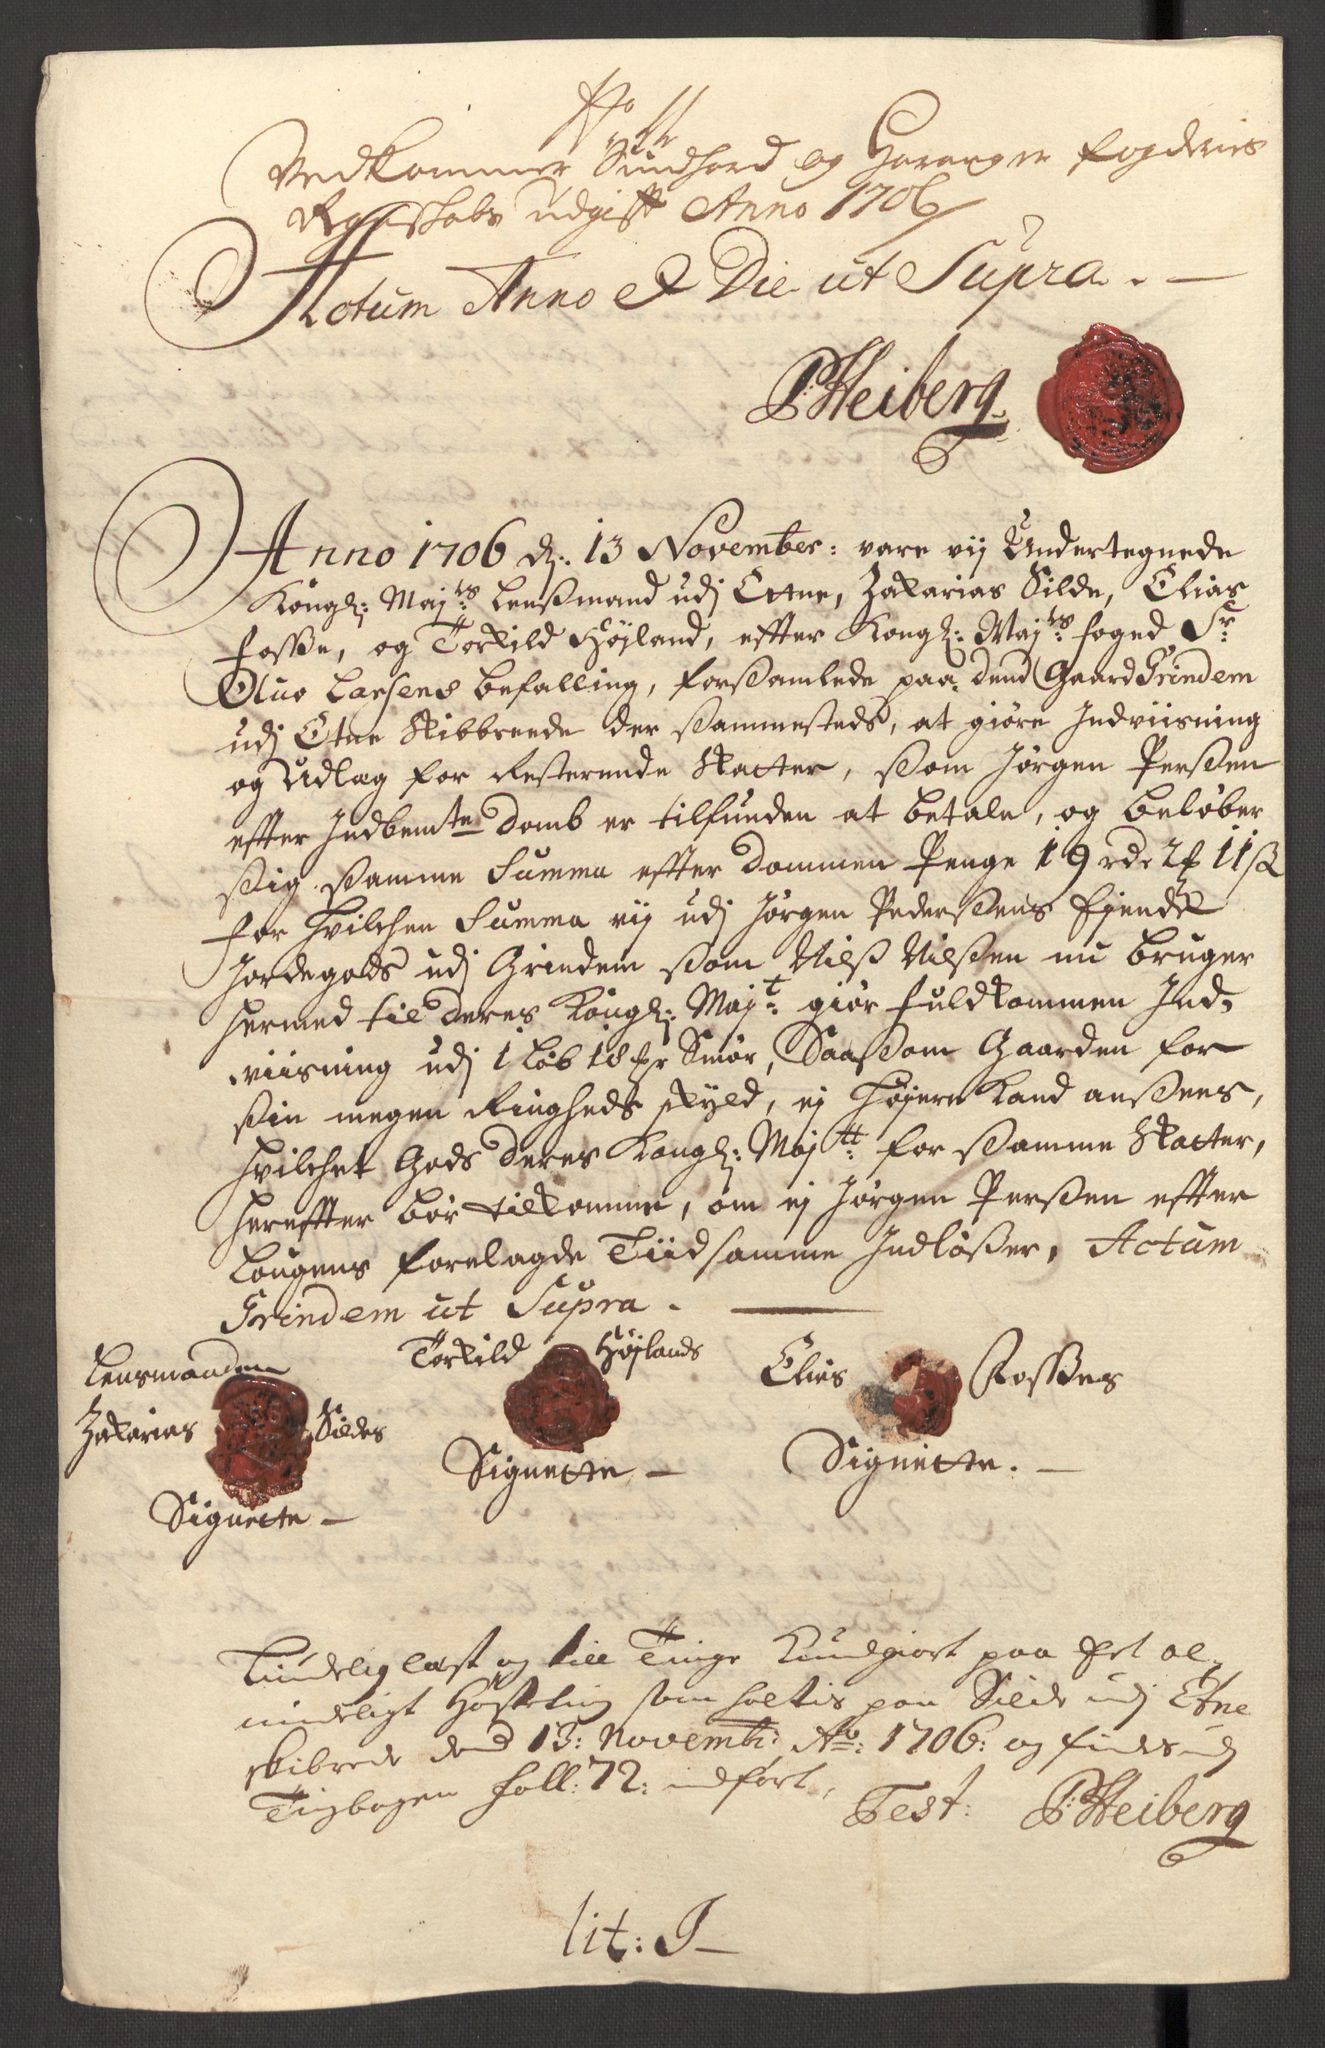 No 11
Vedkommer Sundhord og Haranger fogderies
Regenskabs udgifft Anno 1706
Actum Anno & Die ut Supra. —
P: Heiberg
Anno 1706 d: 13 November: vare vij Undertegnede
Kongl: Majts Lenßmand udj Ettne, Zakarias Silde, Elias
Fosse, og Torkild Højland, effter Kongl: Majts foged Sr
Oluo Larsens befalling, forßamblede paa dend Gaard Grindem
udj Etne Skibbreede der sammesteds, at giøre Indviisning
og Udlag for Resterende Skatter, ßom Jørgen Perßen
efter Indbemte Domb er tilfunden at betale, og beløber
ßig ßamme Summa efter Dommen Penge 19 rdr 2 11 ß
for hvilchen Summa vij udj Jørgen Pederßens Ejende
Jordegods udj Grindem ßom Nilß Nilßen nu bruger
hermed til Deres Kongl: Majt: giør fuldkommen Ind-
viisning udj 1 Løb 18 Smør, Saasom Gaarden for
ßin megen Ringheds skyld, ej højere kand anßees,
hvilchet Gods Deres Kongl: Majtt: for ßamme Skatter,
hereffter bør tilkomme, om ej Jørgen Perßen efter
Lougens forelagde Tiid samme Indløßer, Actum
Grindem ut Supra. —
Lensmanden
Zakarias Sildes
Signette —
Torkild Højlands
Signette —
Elies Fosses
Signette. —
Tindelig læst og till Tinge Kundgiort paa Et al-
mindeligt Høsteting som holtis paa Silde udj Etne
skibrede dend 13: Novembr: Ao: 1706: og findes udj
Tingbogen foll: 72: indført,
Test: P: Heiberg
lit: J —